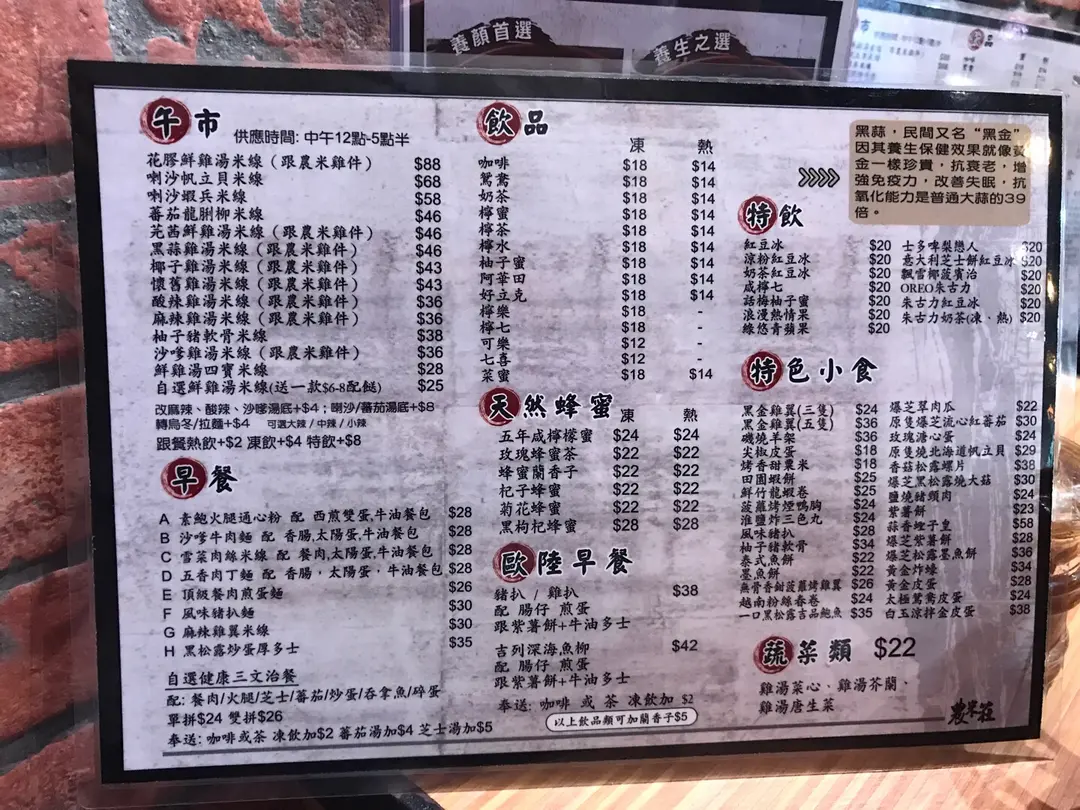 養顏首選
養生之選
午市
供應時間: 中午12點-5點半
花膠鮮雞湯米線（跟農米雞件） $88
喇沙帆立貝米線 $68
喇沙蝦兵米線 $58
蕃茄龍脷柳米線 $46
芫茜鮮雞湯米線（跟農米雞件） $46
黑蒜雞湯米線（跟農米雞件） $46
椰子雞湯米線（跟農米雞件） $43
懷舊雞湯米線（跟農米雞件） $43
酸辣雞湯米線（跟農米雞件） $36
麻辣雞湯米線（跟農米雞件） $36
柚子豬軟骨米線 $38
沙嗲雞湯米線（跟農米雞件） $36
鮮雞湯四寶米線 $28
自選鮮雞湯米線(送一款$6-8配餸) $25
改麻辣、酸辣、沙嗲湯底+$4；喇沙/蕃茄湯底+$8
轉烏冬/拉麵+$4 可選大辣 / 中辣 / 小辣
跟餐熱飲+$2 凍飲+$4 特飲+$8
早餐
A 素鮑火腿通心粉 配 西煎雙蛋,牛油餐包 $28
B 沙嗲牛肉麵 配 香腸,太陽蛋,牛油餐包 $28
C 雪菜肉絲米線 配 餐肉,太陽蛋,牛油餐包 $28
D 五香肉丁麵 配 香腸，太陽蛋，牛油餐包 $28
E 頂級餐肉煎蛋麵 $26
F 風味豬扒麵 $30
G 麻辣雞翼米線 $30
H 黑松露炒蛋厚多士 $35
自選健康三文治餐
配: 餐肉/火腿/芝士/蕃茄/炒蛋/吞拿魚/碎蛋
單拼$24 雙拼$26
奉送: 咖啡或茶 凍飲加$2 蕃茄湯加$4 芝士湯加$5
飲品
凍 熱
咖啡 $18 $14
鴛鴦 $18 $14
奶茶 $18 $14
檸蜜 $18 $14
檸茶 $18 $14
檸水 $18 $14
柚子蜜 $18 $14
阿華田 $18 $14
好立克 $18 $14
檸樂 $18 -
檸七 $18 -
可樂 $12 -
七喜 $12 -
菜蜜 $18 $14
天然蜂蜜 凍 熱
五年咸檸檬蜜 $24 $24
玫瑰蜂蜜茶 $22 $22
蜂蜜蘭香子 $22 $22
杞子蜂蜜 $22 $22
菊花蜂蜜 $22 $22
黑枸杞蜂蜜 $28 $28
歐陸早餐
豬扒 / 雞扒 $38
配 腸仔 煎蛋
跟紫薯餅+牛油多士
吉列深海魚柳 $42
配 腸仔 煎蛋
跟紫薯餅+牛油多士
奉送: 咖啡 或 茶 凍飲加 $2
以上飲品類可加蘭香子$5
黑蒜，民間又名“黑金”
因其養生保健效果就像黃
金一樣珍貴，抗衰老，增
強免疫力，改善失眠，抗
氧化能力是普通大蒜的39
倍。
特飲
紅豆冰 $20
涼粉紅豆冰 $20
奶茶紅豆冰 $20
咸檸七 $20
話梅柚子蜜 $20
浪漫熱情果 $20
綠悠青蘋果 $20
士多啤梨戀人 $20
意大利芝士餅紅豆冰 $20
飄雪椰菠賓治 $20
OREO朱古力 $20
朱古力紅豆冰 $20
朱古力奶茶(凍、熱) $20
特色小食
黑金雞翼(三隻) $24
黑金雞翼(五隻) $36
磯燒羊架 $36
尖椒皮蛋 $18
烤香甜粟米 $18
田園蝦餅 $25
鮮竹龍蝦卷 $25
菠蘿烤煙鴨胸 $24
淮鹽炸三色丸 $24
風味豬扒 $28
柚子豬軟骨 $34
泰式魚餅 $22
墨魚餅 $22
無骨香甜菠蘿烤雞翼 $26
越南粉絲春卷 $24
一口黑松露吉品鮑魚 $35
爆芝翠肉瓜 $22
原隻爆芝流心紅蕃茄 $30
玫瑰溏心蛋 $24
原隻燒北海道帆立貝 $29
香菇松露螺片 $38
爆芝黑松露燒大菇 $30
鹽燒豬頸肉 $24
紫薯餅 $23
蒜香蟶子皇 $58
爆芝紫薯餅 $28
爆芝松露墨魚餅 $36
黃金炸蠔 $34
黃金皮蛋 $28
太極鴛鴦皮蛋 $24
白玉涼拌金皮蛋 $38
蔬菜類 $22
雞湯菜心、雞湯芥蘭、
雞湯唐生菜
農米莊